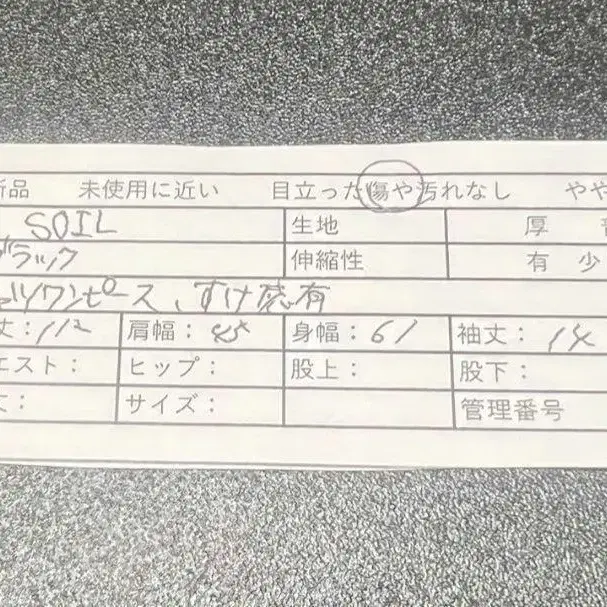 新品 未使用に近い 目立った傷や汚れなし やや
SOIL 生地 厚
ブラック 伸縮性 有 少
ワンピース、すけ感有
丈：112 肩幅：45 身幅：61 袖丈：14
エスト： ヒップ： 股上： 股下：
丈： サイズ： 管理番号